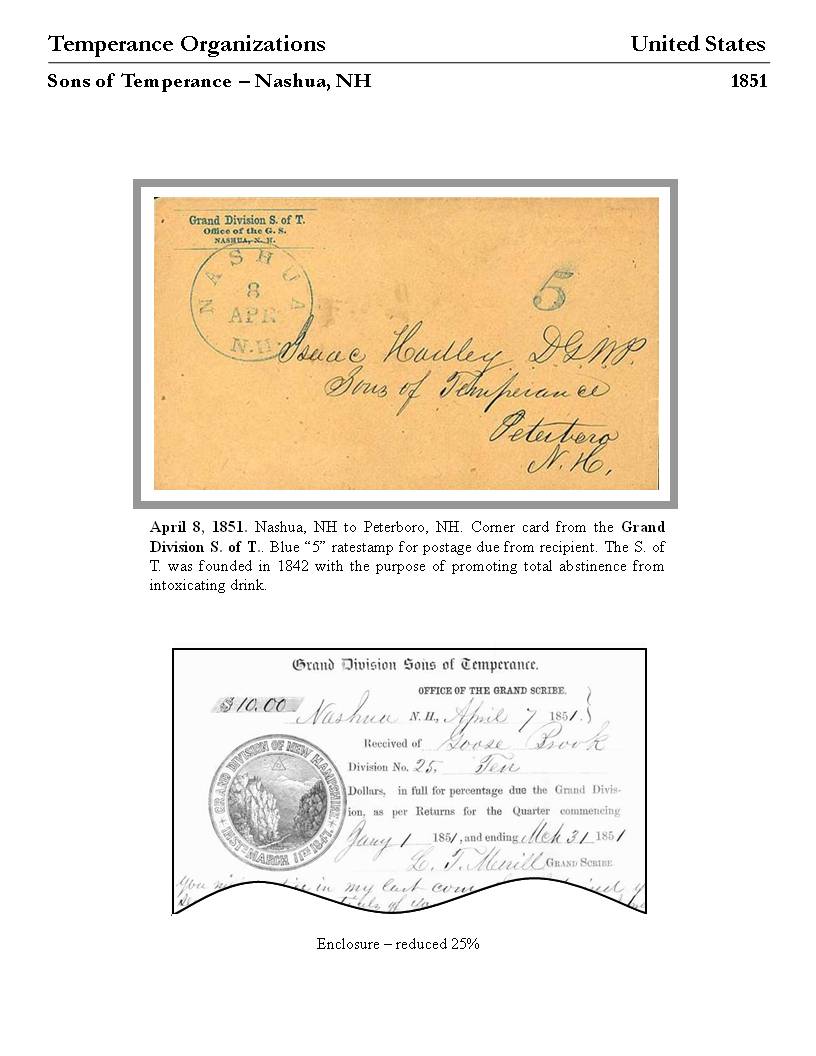 Temperance Organizations United States
Sons of Temperance – Nashua, NH 1851
Grand Division S. of T.
Office of the G. S.
NASHUA, N. H.
NASHUA
8
APR
N.H.
5
Isaac Hadley DGWP.
Sons of Temperance
Peterboro
N.H.
April 8, 1851. Nashua, NH to Peterboro, NH. Corner card from the Grand
Division S. of T.. Blue “5” ratestamp for postage due from recipient. The S. of
T. was founded in 1842 with the purpose of promoting total abstinence from
intoxicating drink.
Grand Division Sons of Temperance.
OFFICE OF THE GRAND SCRIBE.
$10.00 Nashua N. H., April 7 1851.
Received of Goose Brook
Division No. 25, Ten
Dollars, in full for percentage due the Grand Divis-
ion, as per Returns for the Quarter commencing
Jany 1 1851, and ending Mch 31 1851
L. T. Merrill GRAND SCRIBE
GRAND DIVISION OF NEW HAMPSHIRE
INST. MARCH 11TH 1847.
You in my last
Enclosure – reduced 25%